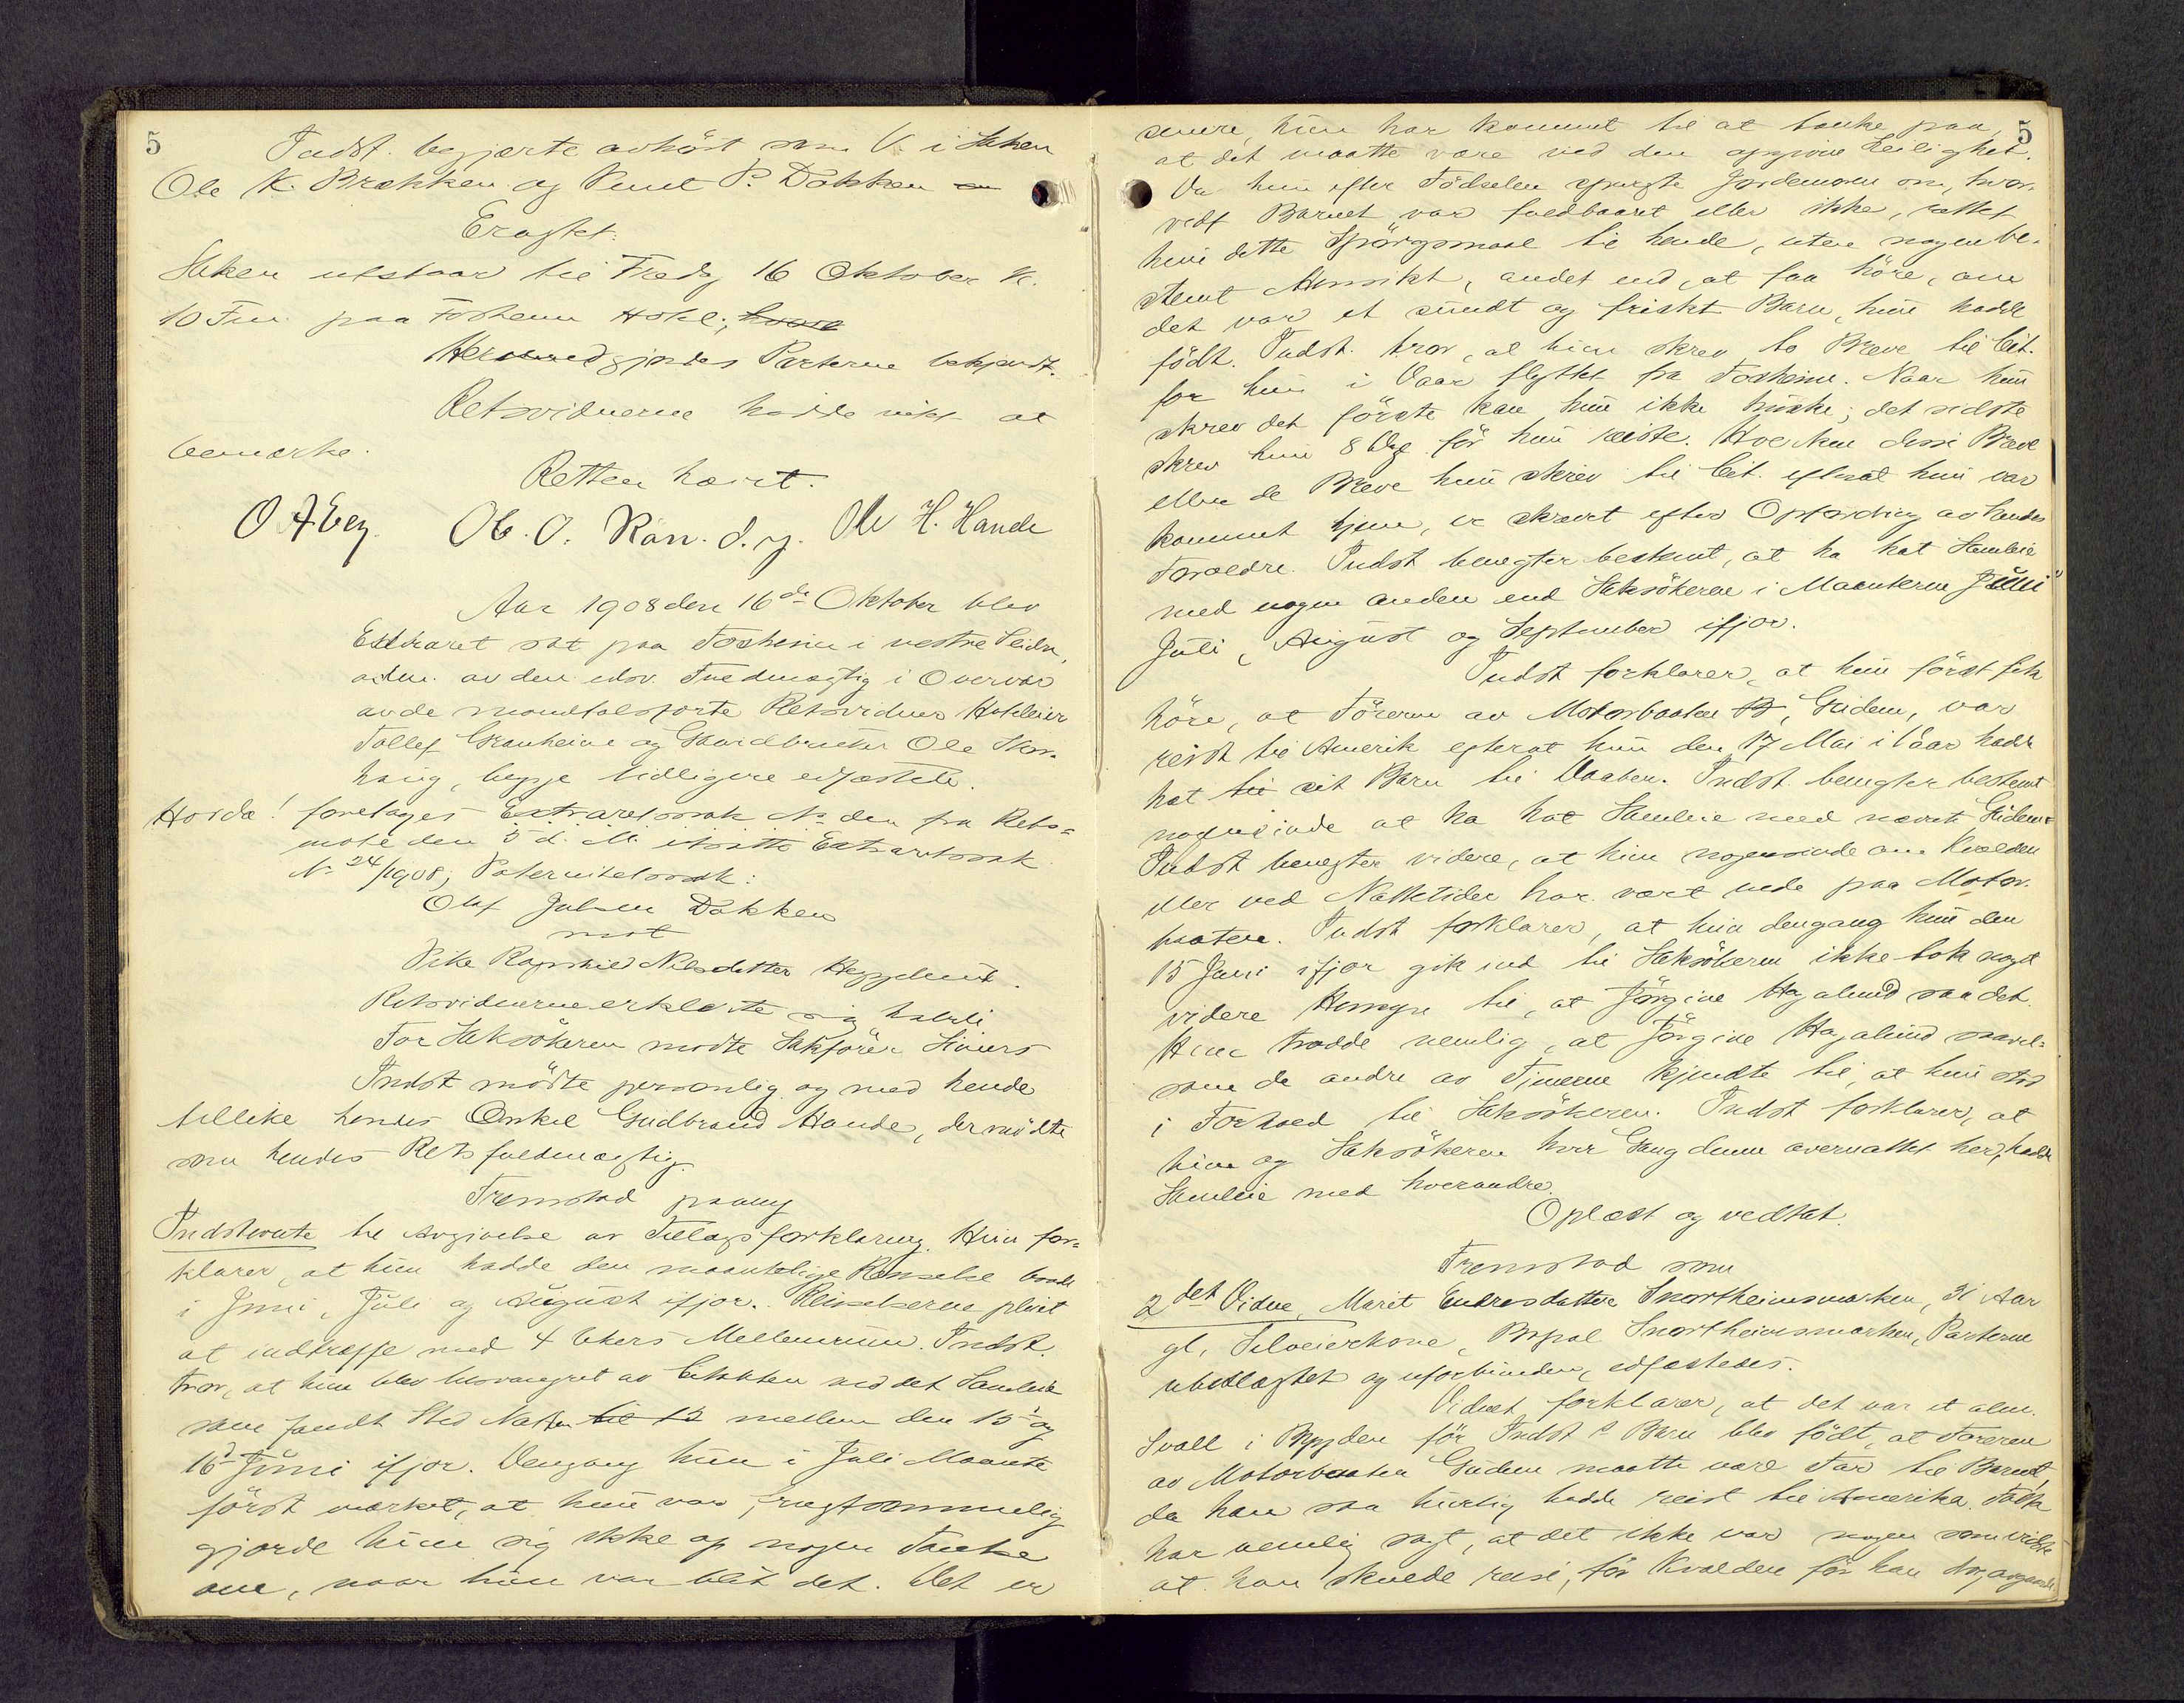 5
Indst. begjærte avhört som V. i Saken
Ole K. Brækken og Knut P. Dokken
Eragtet:
Saken utstaar til Fredag 16 Oktober Kl.
10 Fm. paa Fosheim Hotel;
Hermed gjordes Parterne bekjendt.
Retsvidnerne hadde intet at
bemærke.
Retten hævet.
O Aberg. Ol. O. Rön. d.y. Ole H. Hande
Aar 1908 den 16de Oktober blev
Extraret sat paa Fosheim i vestre Slidre,
adm. av den edsv. Fuldmægtig i Overvær
av de mandtalsførte Retsvidner Hoteleier
Tollef Granheim og Gaardbruker Ole Skor-
haug, begge tidligere edfæstede.
Hvorda! foretages Extraretssak No den fra Rets-
møte den 5 d. M. utsatte Extraretssak
No 24/1908; Paternitetssak:
Olaf Julsen Dokken
mot
Pike Ragnhild Nilsdatter Heggelund.
Retsvidnerne erklærte sig habile
For Saksökeren mødte Sakförer Sivers
Indst. mödte personlig og med hende
tillike hendes Onkel Gudbrand Hande, der mödte
som hendes Retsfuldmægtig.
Fremstod paany
Indstevnte til Avgivelse av Tillægsforklaring. Hun for-
klarer, at hun hadde den maantelige Renselse baade
i Juni, Juli og August ifjor. Renselserne pleiet
at indtræffe med 4 Ukers Mellemrum. Indst.
tror, at hun blev besvangret av Citanten ved det Samleie
som fandt Sted Natten til 15 mellem den 15 og
16d Juni ifjor. Dengang hun i Juli Maanet
først merket, at hun var frugtsommelig
gjorde hun sig ikke op nogen Tanke
om, naar hun var blit det. Det er
5
senere, hun har kommet til at tænke paa,
at det maatte være ved den opgivne Leilighet.
Da hun efter Födselen spurgte Jordemoren om, hvor-
vidt Barnet var fuldbaaret eller ikke, rettet
hun dette Spörgsmaal til hende, uten nogen be-
stemt Hensikt, andet end at faa höre, om
det var et sundt og friskt Barn, hun hadde
födt. Indst. tror, at hun skrev to Breve til Cit.
før hun i Vaar flyttet fra Fosheim. Naar hun
skrev det förste kan hun ikke huske; det sidste
skrev hun 8 Dage för hun reiste. Hverken disse Breve
eller de Breve hun skrev til Cit. efterat hun var
kommet hjem, er skrevet efter Opfordring av hendes
Forældre. Indst. benegter bestemt, at ha hat Samleie
med nogen anden end Saksökeren i Maanterne Juni
Juli, August og September ifjor.
Indst. forklarer, at hun först fik
höre, at Föreren av Motorbaaten, Gudem, var
reist til Amerik efterat hun den 17 Mai i Vaar hadde
hat til sit Barn til Daaben. Indst. benegter bestemt
nogensinde at ha hat Samleie med nævnte Gudem.
Indst. benegter videre, at hun nogensinde om Kvelden
eller ved Nattetider har været nede paa Motor-
baaten. Indst. forklarer, at hun dengang hun den
15 Juni ifjor gik ind til Saksökeren ikke tok noget
videre Hensyn til, at Jörgine Hagalund saa det.
Hun trodde nemlig, at Jörgine Hagalund saavel-
som de andre av Tjenerne kjendte til, at hun stod
i Forhold til Saksökeren. Indst. forklarer, at
hun og Saksökeren hver Gang denne overnattet her, hadde
Samleie med hverandre.
Oplæst og vedtat.
Fremstod som
2det Vidne, Marit Endresdatter Snortheimsmarken, 31 Aar
gl, Selveierkone, Bopæl Snortheimsmarken, Parterne
ubeslægtet og uforbunden, edfæstedes.
Vidnet forklarer, at det var et alm.
Svall i Bygden för Indst.s Barn blev födt, at Föreren
av Motorbaaten Gudem maatte være Far til Barnet,
da han saa hurtig hadde reist til Amerika. Folk
har nemlig sagt, at det ikke var nogen som vidste
at han skulde reise, för Kvelden för han drog avgaarde.